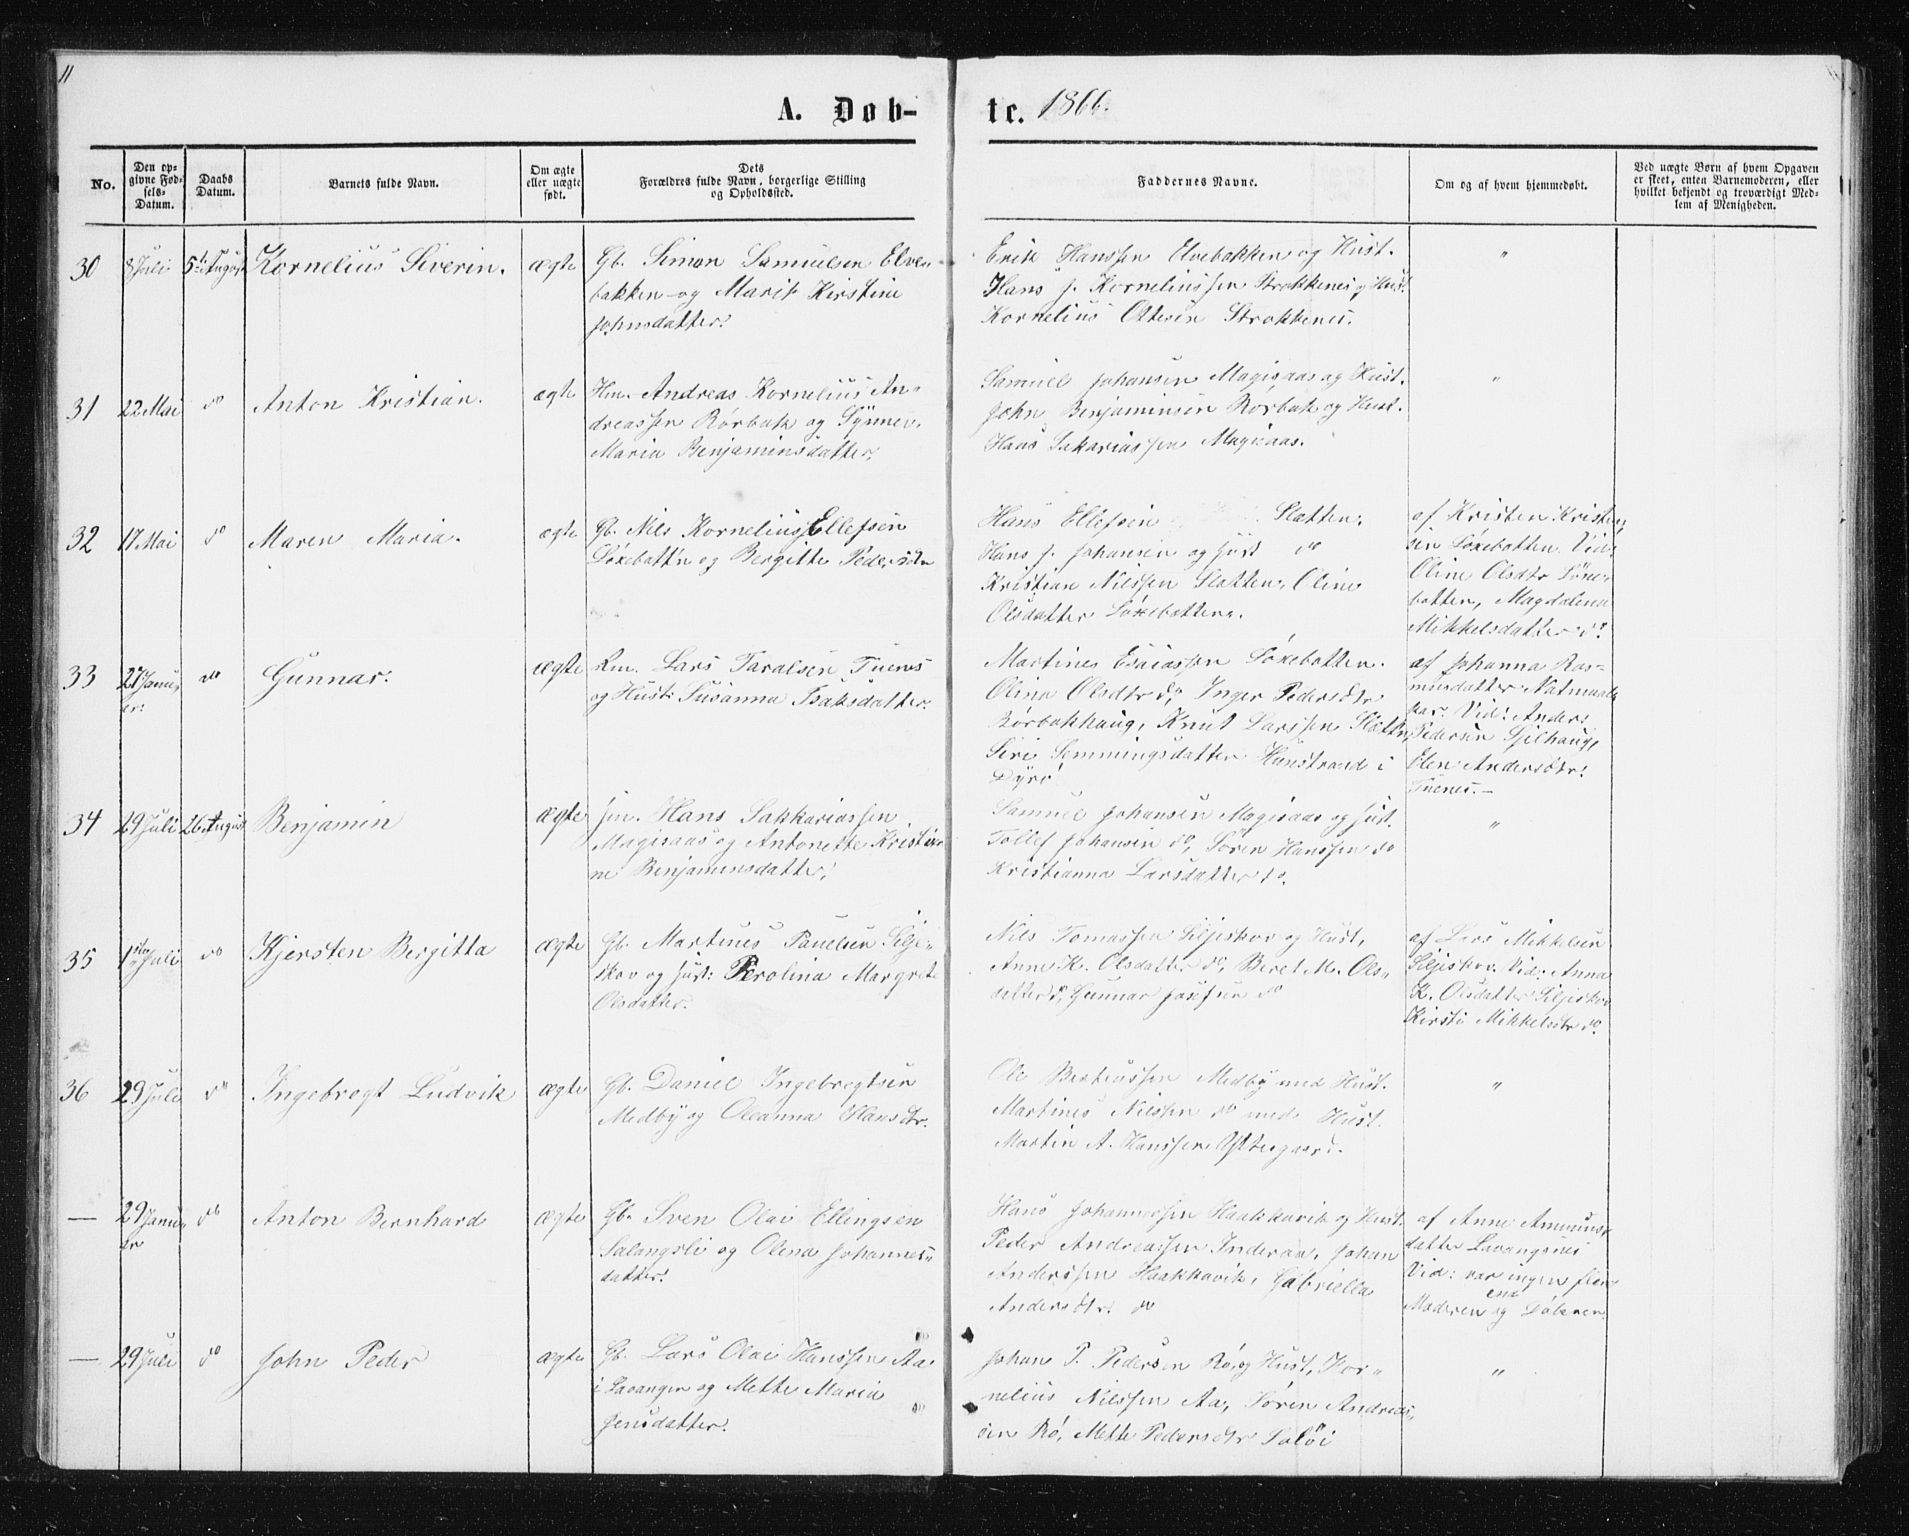 11
A. Døb-
te. 1866.
No.
Den op-
givne Fød-
sels-
Datum.
Daabs
Datum.
Barnets fulde Navn.
Om ægte
eller uægte
født.
Dets
Forældres fulde Navn, borgerlige Stilling
og Opholdssted.
Faddernes Navne.
Om og af hvem hjemmedøbt.
Ved uægte Børn af hvem Opgaven
er skeet, enten Barnemoderen, eller
hvilket bekjendt og troværdigt Med-
lem af Menigheden.
30 8 Juli 5te August Kornelius Severin. ægte
Gb. Simon Samuelsen Elve-
bakken og Marit Kirstine
Johnsdatter.
Erik Hanssen Elvebakken og Hust.
Hans J. Korneliussen Strokkenes og Hust.
Kornelius Ottesen Strokkenes.
"
31 22 Mai do Anton Kristian. ægte
Hm. Andreas Kornelius An-
dreassen Rørbak og Synnev
Maria Benjaminsdatter.
Samuel Johansen Magisaas og Hust.
John Benjaminsen Rørbak og Hust.
Hans Sakariassen Magisaas.
"
32 17 Mai do Maren Maria. ægte
Gb. Nils Kornelius Ellefsen
Løxebotten og Bergitte Pedersdtr
Hans Ellefsen Slatten.
Hans J. Johansen og Hust do
Kristian Nilssen Slatten, Oline
Olsdatter Løxebotten.
af Kristen Kristen-
sen Løxebotten. Vid.
Oline Olsdtr Løxe-
botten, Magdalena
Mikkelsdatter do.
33 27 Janu-
ar. do Gunnar. ægte
Lm. Lars Taralsen Tuenes
og Hust. Susanna Isaksdatter.
Martines Esaiassen Løxebotten.
Olina Olsdtr do, Inger Pedersdtr
Rørbakhaug, Knut Larssen Slotten,
Siri Semmingsdatter Hunstrand i
Dyrø
af Johanna Ras-
musdatter Vatmaals-
kar. Vid: Anders
Pedersen Sjelhaug,
Elen Andersdtr.
Tuenes.-
34 29 Juli 26 August Benjamin ægte
Hm. Hans Sakkariassen
Magisaas og Antonette Kristi-
ne Benjaminsdatter.
Samuel Johansen Magisaas og Hust.
Tollef Johansen do, Søren Hanssen do
Kristianna Larsdatter do.
"
35 1ste Juli do Kjersten Bergitta ægte
Gb. Martines Paulsen Silje-
skov og Hust: Karolina Margrete
Olsdatter.
Nils Tomassen Siljeskov og Hust,
Anne K. Olsdatter do, Beret M. Ols-
datter do, Gunnar Josefsen do
af Lars Mikkelsen
Siljeskov. Vid: Anna
K. Olsdatter Siljeskov
Kirsti Mikkelsdtr do.
36 29 Juli do Ingebregt Ludvik ægte
Gb. Daniel Ingebregtsen
Medby og Oleanna Hansdtr.
Ole Berteussen Medby med Hust.
Martines Nilssen do med Hust.
Martin A. Hanssen Yttergaard.
"
— 29 Janu-
ar do Anton Bernhard ægte
Gb. Sven Olai Ellingsen
Salangsli og Olena Johannes-
datter.
Hans Johannessen Haakkavik og Hust.
Peder Andreassen Inderaa, Johan
Anderssen Haakkavik, Gabriella
Andersdtr. do
af Anne Ammuns-
datter Lavangsnes
Vid: var ingen flere
end
Moderen og Døberen.
— 29 Juli do John Peder ægte
Gb. Lars Olai Hanssen Aa
i Lavangen og Mette Maria
Jensdatter.
Johan P. Pedersen Rø og Hust, Kor-
nelius Nilssen Aa, Søren Andreas-
sen Rø, Mette Pedersdtr Soløi
"